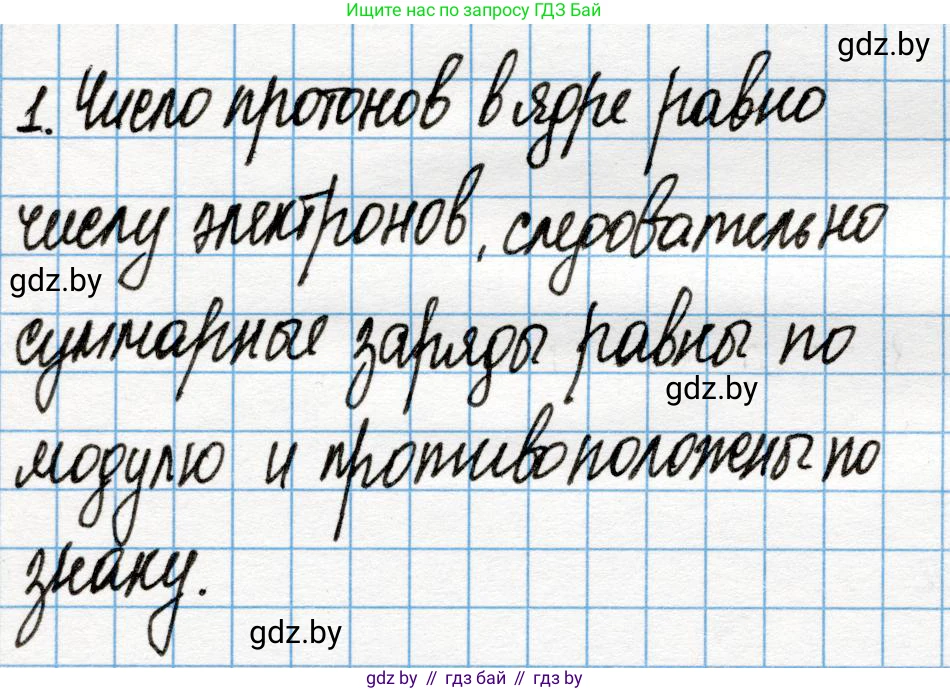 Ищите нас по запросу ГДЗ Бай
gdz.by
1. Число протонов в ядре равно
числу электронов, следовательно
gdz.by
суммарные заряды равны по
gdz.by
модулю и противоположены по
знаку.
gdz.by
gdz.by // гдз бай // gdz.by